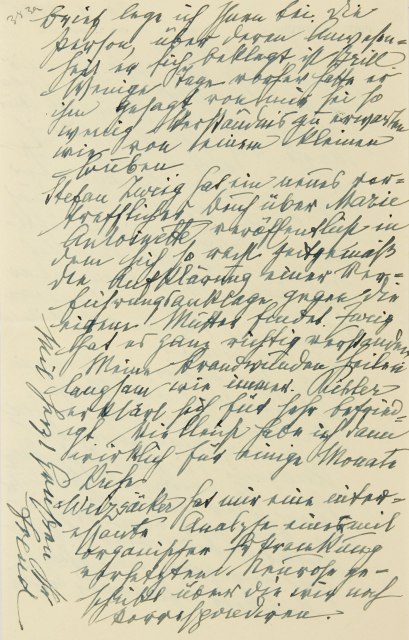 Brief lege ich Ihnen bei. Die
Person, über deren Anwesen-
heit er sich beklagt ist Brill
Wenige Tage vorher hatte er
ihm gesagt von mir sei so
wenig Verständnis zu erwarten
wie von einem kleinen
Buben
Stefan Zweig hat ein neues vor-
treffliches Buch über Marie
Antoinette veröffentlicht in
dem sich so recht zeitgemäß
die Aufklärung einer Ver-
führungsanklage gegen die
eigene Mutter findet. Zweig
hat es ganz richtig verstanden
Meine Brandwunden heilen
langsam wie immer. Pichler
erklärt sich für sehr befried-
igt. Vielleicht habe ich dann
wirklich für einige Monate
Ruhe
Weizsäcker hat mir eine inter-
essante Analyse eines mit
organischer Erkrankung
versetzten Neurose ge-
schickt über die wir noch
korrespondieren.
Mit herzl
Freud